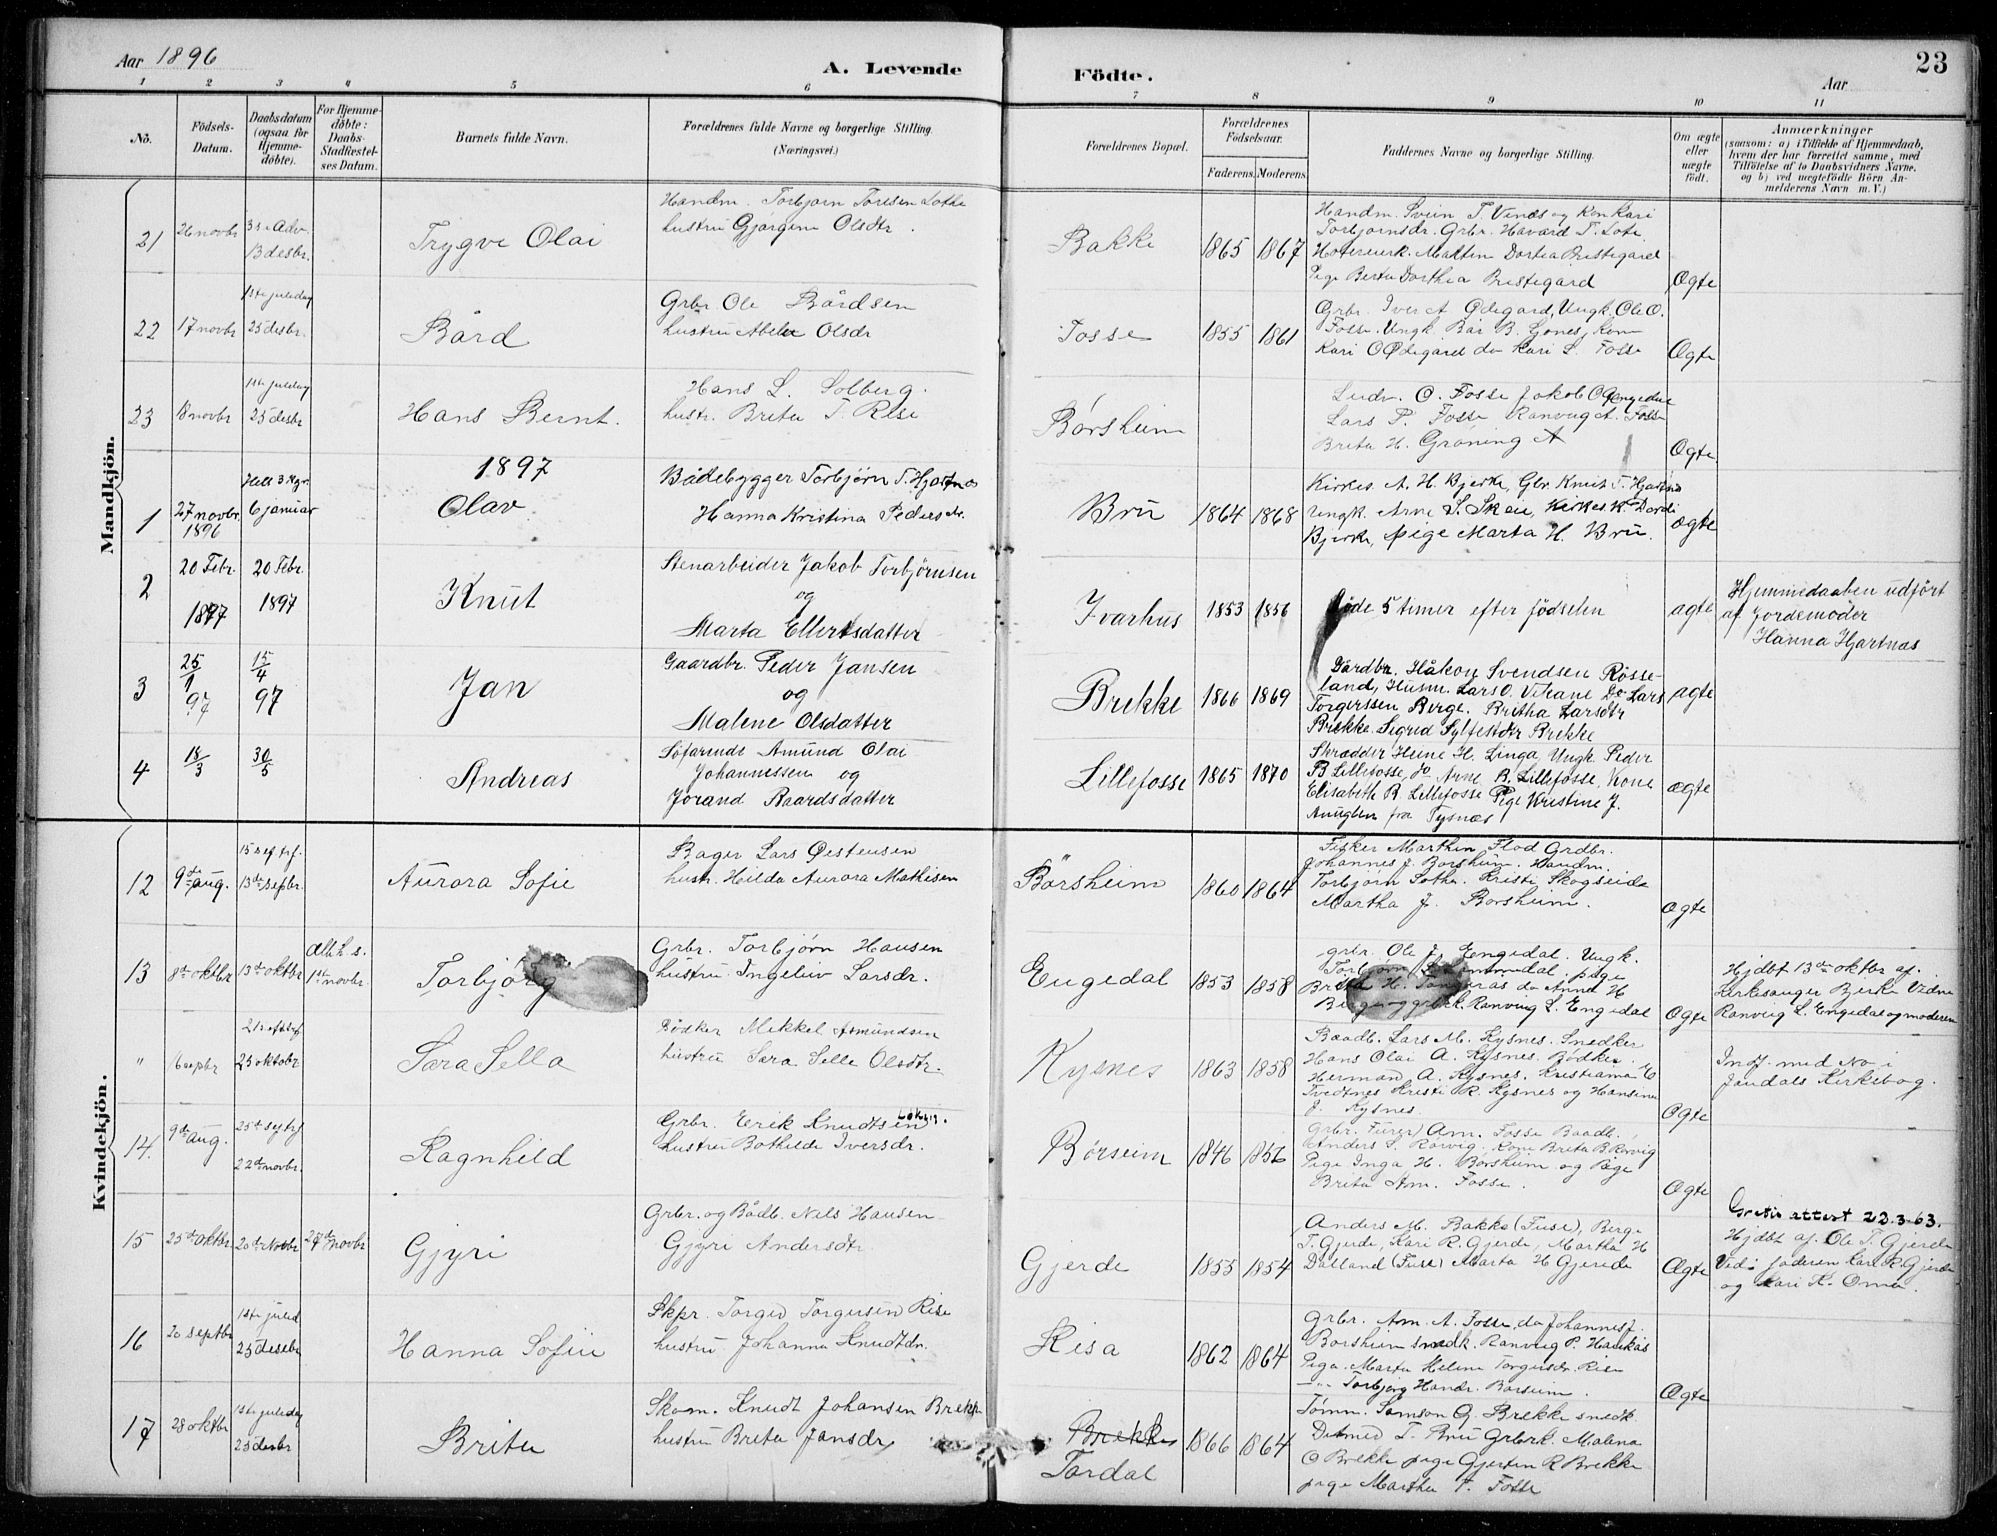 Aar 1896
A. Levende
Födte.
Aar
23
1 2 3 4 5 6 7 8 9 10 11
No.
Födsels-Datum.
Daabsdatum (ogsaa for Hjemmedöbte).
For Hjemmedöbte: Daabs-Stadfæstelses Datum.
Barnets fulde Navn.
Forældrenes fulde Navne og borgerlige Stilling. (Næringsvei.)
Forældrenes Bopæl.
Forældrenes Födselsaar.
Faderens. Moderens.
Faddernes Navne og borgerlige Stilling.
Om ægte eller uægte födt.
Anmærkninger
(saasom: a) i Tilfælde af Hjemmedaab, hvem der har forrettet samme, med Tilföielse af to Daabsvidners Navne, og b) ved uægtefödte Börn Anmelderens Navn m. V.)
Mandkjön.
21 26 novbr 3 s i Adv. 13 desbr.
Trygve Olai
Handm. Torbjørn Toresen Lothe
hustru Gjørgine Olsdtr.
Bakke 1865 1867
Handm. Svein T. Vinæs og Kon Kari
Torbjørnsdr. Grbr. Håvard T. Lote
Dortea Prestegard
Pige Berta Dorthea Prestegård
Ægte
22 17 novbr 1ste juledag 25 desbr.
Bård
Grbr Ole Bårdsen
hustru Olsdr
Fosse 1855 1861
Grbr. Iver A Ødegard, Ungk. Ole O.
Fosse. Ungk. Bår B. Gones, Kon
Kari O Ødegård do Kari L. Fosse
Ægte
23 18 novbr 1ste juledag 25 desbr
Hans Bernt.
Hans L. Solberg.
hustr. Brita T. Rise
Børsheim
Ludv. O. Fosse Jakob O Engedal
Lars P. Fosse Ranveig A. Fosse
Brita H. Grøning
Ægte
1897
1 27 novbr. 1896 Hell 3 Kgr. 6 januar
Olav
Bådebygger Torbjørn T. Hjartnæs
Hanna Kristina Pedersdr.
Brü 1864 1868
Kirkes. A. H. Bjerke, Gbr. Knut T. Hjartnæs
Ungk. Arne S. Skeie, Kirkes K. Dordi
Bjerke, pige Marta H. Brü.
ægte
2 20 Febr. 1897 20 Febr. 1897
Knut
Stenarbeider Jakob Torbjörnsen
og
Marta Ellertsdatter
Ivarhus 1853 1856
döde 5 timer efter födselen
ægte
Hjemmedaaben udført
af Jordemoder
Hanna Hjartnæs
3 25/1 97 15/4 97
Jan
Gaardbr. Peder Jansen
og
Malene Olsdatter
Brekke 1866 1869
Gardbr. Håkon Svendsen Røsse-
land, Husm. Lars O. Vikane Do Lars
Torgerssen Berge. Britha Larsdtr
Brekke. Sigrid Sylfestdtr Brekke
ægte
4 18/3 30/5
Andreas
Söfarende Amund Olai
Johannessen og
Jorand Baardsdatter
Lillefosse 1865 1870
Skrædder Heine H. Linga Ungk Peder
B Lillefosse, do Arne B. Lillefosse, Kone
Elisabeth B. Lillefosse Pige Kristine J.
Anuglen fra Tysnæs
ægte
Kvindekjön.
12 9de aug. 15 s ef trf. 13de sepbr.
Aurora Sofie
Bager Lars Østensen
hustr. Hilda Aurora Mathisen
Børsheim 1860 1864
Fisker Marthin Flod Grdbr.
Johannes J. Borsheim. Handm.
Torbjørn Lothe. Kristi Skogseide
Martha J. Borsheim.
Ægte
13 8de oktbr 13de oktbr Alle h. s. 1ste novbr.
Torbjørg
Grbr. Torbjørn Hansen
hustru. Ingeliv Larsdr.
Engedal 1853 1858
grbr. Ole J. Engedal. Ungk.
Torbjørn pige
Brita H. do Anna H
Berge og grbrk. Ranveig L. Engedal
Ægte
Hjdbt 13de oktbr af.
Kirkesanger Bjerke Vidne
Ranveig L. Engedal og moderen
" 16 sepbr 21 s eft trf 25 oktobr
Sara Sella
Bødker Mikkel Asmundsen
hustru Sara Selle Olsdtr.
Kysnes 1863 1858
Baadb. Lars M. Kysnes. Snedker
Hans Olai A. Kysnes. Bødker
Herman A. Kysnes. Kristiania C
Tvedtnes Kristi R. Kysnes og Hansine
J. Kysnes
Ægte
Indf. med No i
Jondals Kirkebog.
14. 9de aug. 25de s e trf 22de novbr.
Ragnhild
Grbr. Erik Knudtsen
hustru Bothilde Iversdr.
Børseim 1846 1856
Grbr. Arn. Fosse Baadb.
Anders S. Rørvig, Kone Brita B. Rørvig
Pige Inga H. Borsheim og Pige
Brita Arn. Fosse.
Ægte
15 25de oktbr 20de Novbr novbr
Gjyri
Grbr. og Bådb. Nils Hansen
Gjyri Andersdtr.
Gjerde 1855 1854
Anders M. Bakke (Fuse), Berge
T. Gjerde, Kari R. Gjerde, Martha H
Dalland (Fuse) Marta H Gjerde
Ægte
Gratis attest 22.3-63.
Hjdbt af. Ole T. Gjerde
Vid. faderen R. Gjerde
og Kari K. Oma.
16 20 septbr 1ste juled 25 desebr
Hanna Sofie
Skpr. Torger Torgersen Rise
hustru Johanna Knudtdr.
Risa 1862 1864
Grbr. Arn. A. Fosse, do Johannes J.
Borsheim snedk. Ranveig P. Haukås
Pige. Marta Helene Torgersdr. Rise
Torbjørg Hansdr. Borseim.
Ægte
17 28 oktbr 1ste juledag 25 desbr
Brita
Skom. Knudt Johansen Brekke
hustru Brita Jansdr
Brekke
Tordal 1866 1864
Tømm. Samson G. Brekke snedk.
Detmed T. Brü Grbrk. Malena
O Brekke pige Gjerten R Brekke
pige Martha T. Fosse